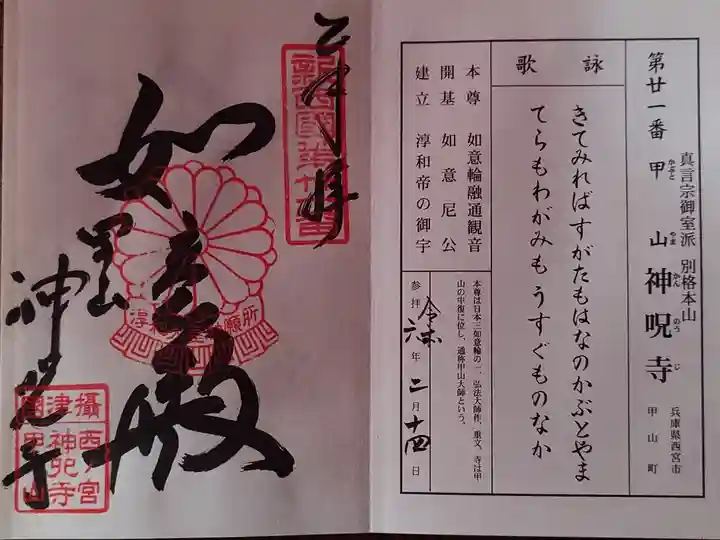 第廿一番 甲山 神呪寺
かぶと やま かん のう じ
真言宗御室派 別格本山
兵庫県西宮市
甲山町
詠歌
きてみればすがたもはなのかぶとやま
てらもわがみもうすぐものなか
本尊 如意輪融通観音
開基 如意尼公
建立 淳和帝の御宇
本尊は日本三如意輪の一、弘法大師作、重文。寺は甲
山の中復に位し、通称甲山大師という。
参拝 令和六年二月十四日
奉拝
新西國第廿一番
如意殿
甲山
神呪寺
攝津國
西ノ宮
甲山
神呪寺